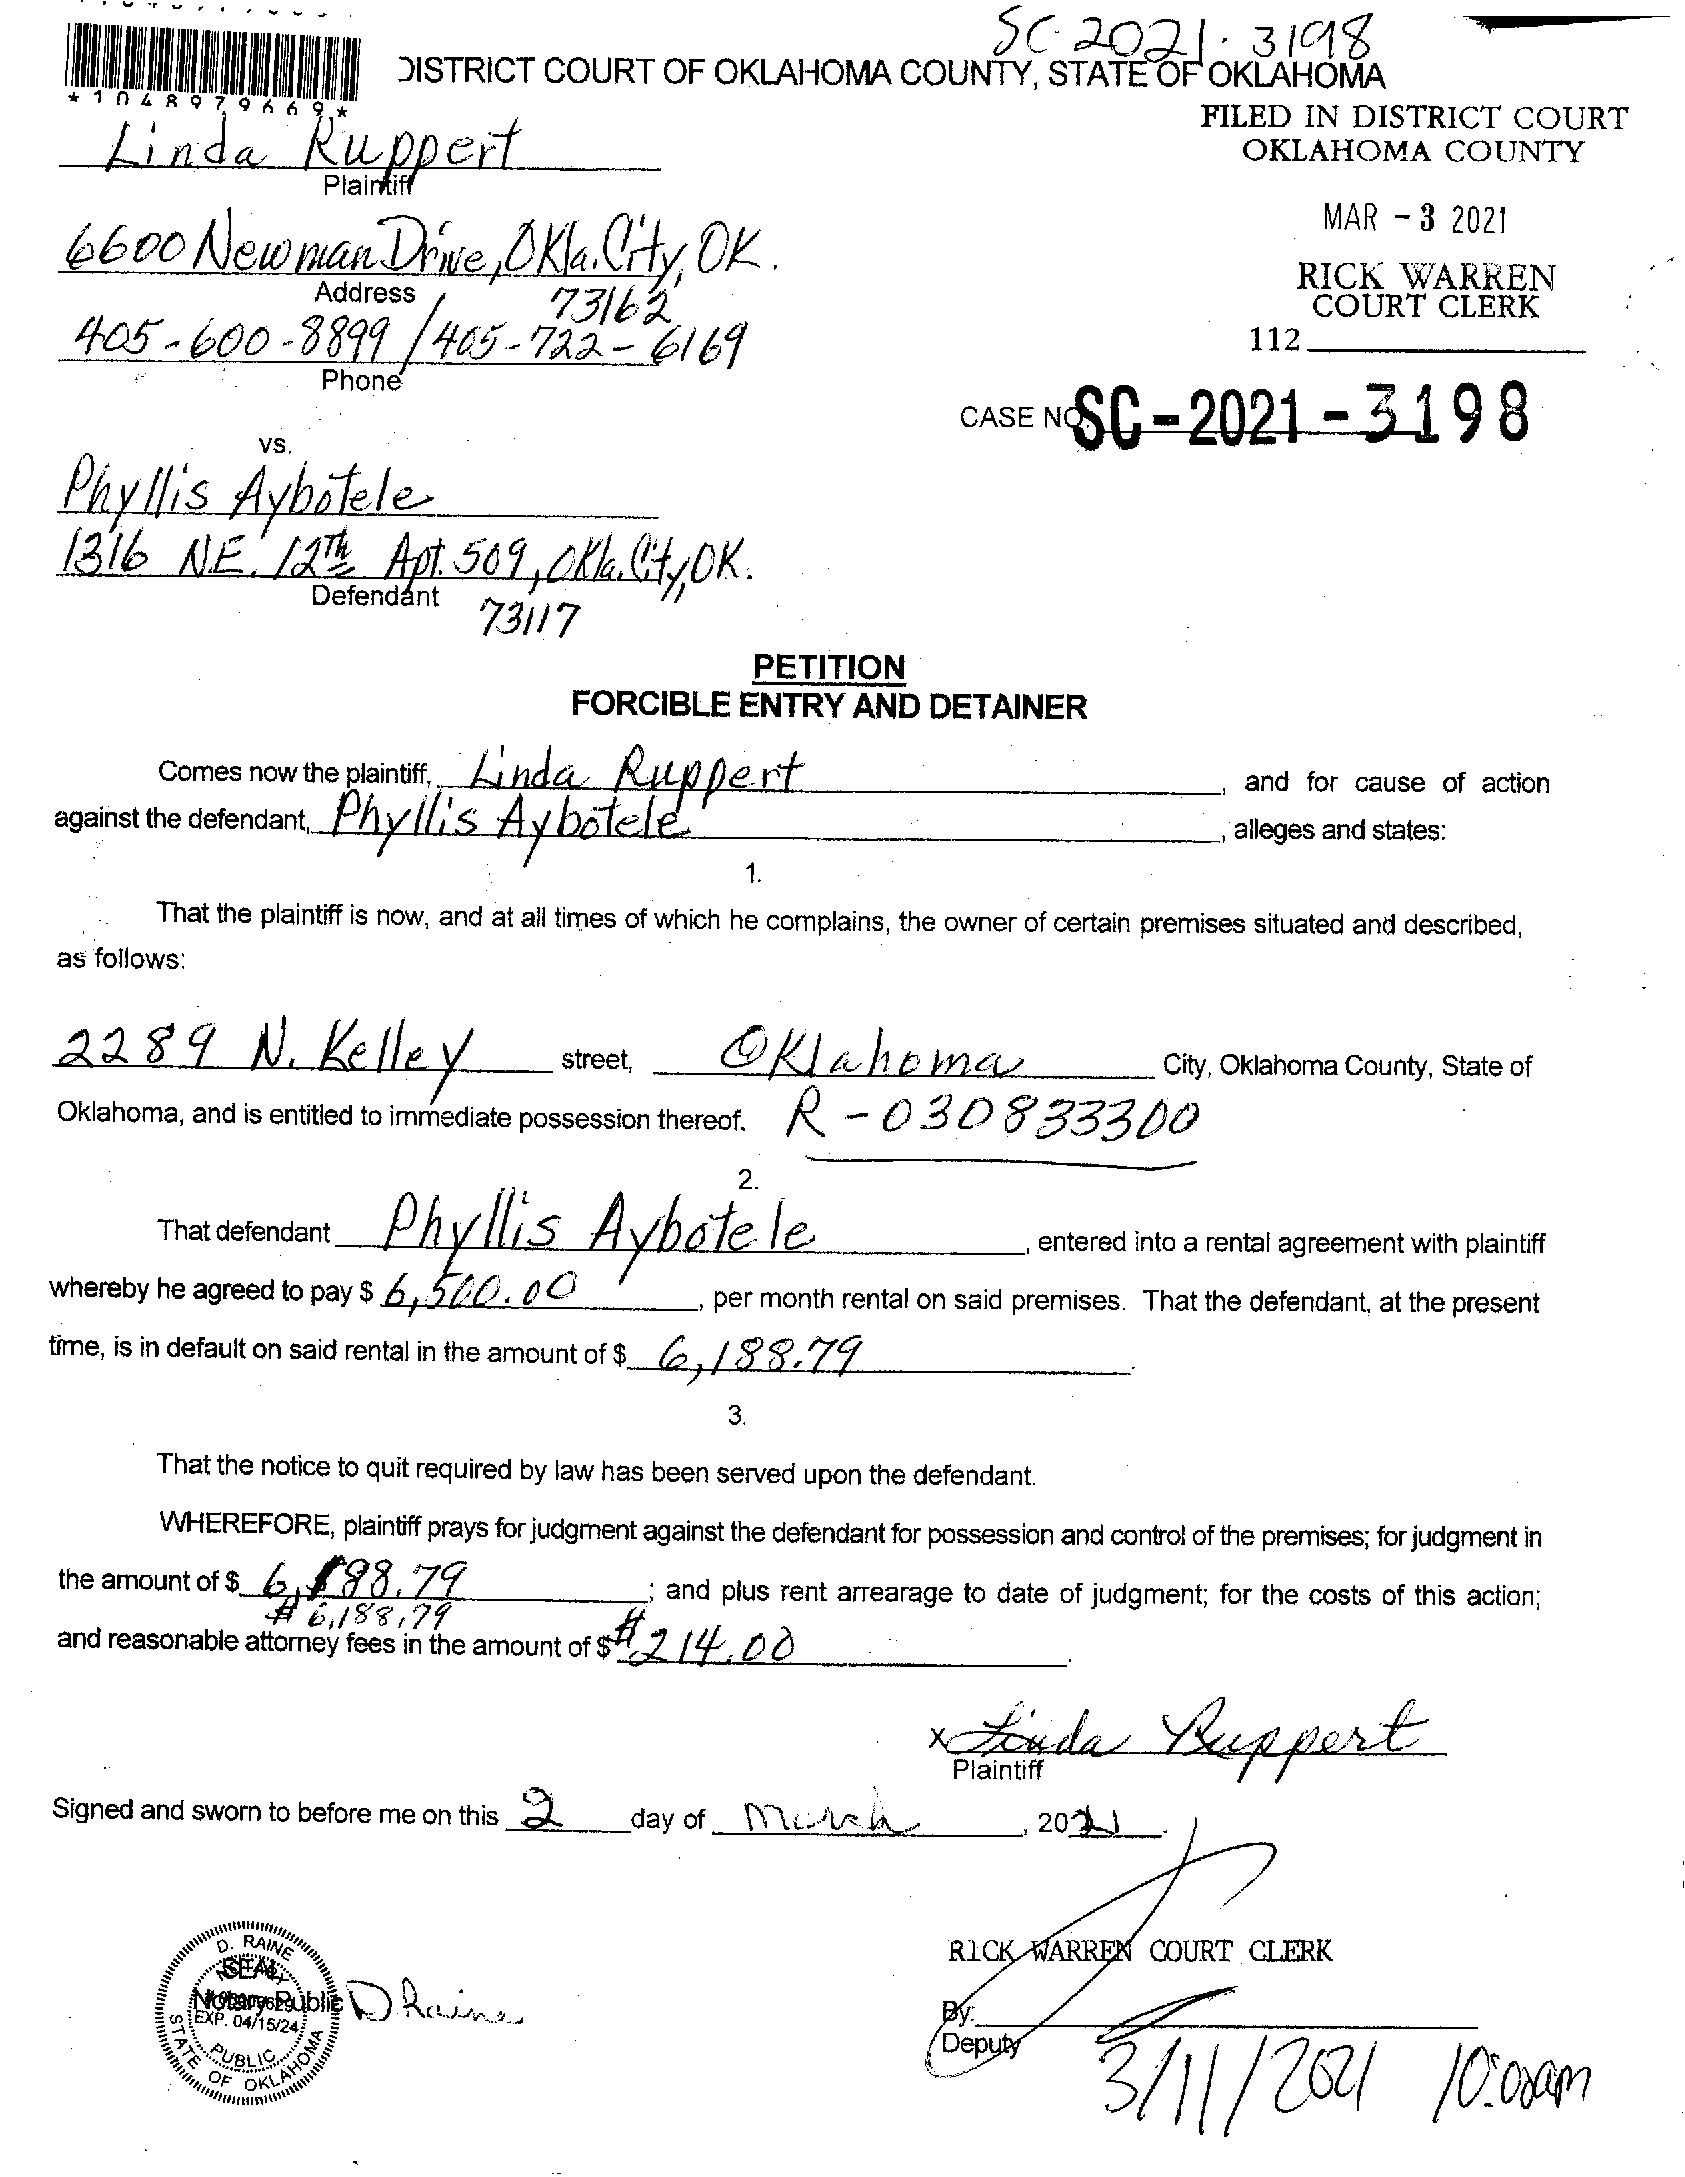 SC-2021-3198
DISTRICT COURT OF OKLAHOMA COUNTY, STATE OF OKLAHOMA
*1048979669*
FILED IN DISTRICT COURT
OKLAHOMA COUNTY
Linda Ruppert
Plaintiff
MAR - 3 2021
6600 Newman Drive, Okla. City, OK.
73162
Address
RICK WARREN
COURT CLERK
405-600-8899 / 405-722-6169
Phone
112
CASE NO SC-2021-3198
VS.
Phyllis Aybotele
1316 N.E. 12th Apt. 509, Okla. City, OK.
Defendant
73117
PETITION
FORCIBLE ENTRY AND DETAINER
Comes now the plaintiff, Linda Ruppert and for cause of action
against the defendant, Phyllis Aybotele, alleges and states:
1.
That the plaintiff is now, and at all times of which he complains, the owner of certain premises situated and described,
as follows:
2289 N. Kelley street, Oklahoma City, Oklahoma County, State of
Oklahoma, and is entitled to immediate possession thereof. R-030833300
2.
That defendant Phyllis Aybotele, entered into a rental agreement with plaintiff
whereby he agreed to pay $ 6,500.00, per month rental on said premises. That the defendant, at the present
time, is in default on said rental in the amount of $ 6,188.79.
3.
That the notice to quit required by law has been served upon the defendant.
WHEREFORE, plaintiff prays for judgment against the defendant for possession and control of the premises; for judgment in
the amount of $ 6,188.79; and plus rent arrearage to date of judgment; for the costs of this action;
# 6,188.79
and reasonable attorney fees in the amount of $ 214.00.
x Linda Ruppert
Plaintiff
Signed and sworn to before me on this 2 day of March, 2021.
D. RAINE
SEAL
Notary Public
EXP. 04/15/24
PUBLIC
STATE OF OKLAHOMA
D Raine
RICK WARREN COURT CLERK
By:
Deputy
3/11/2021 10:00am